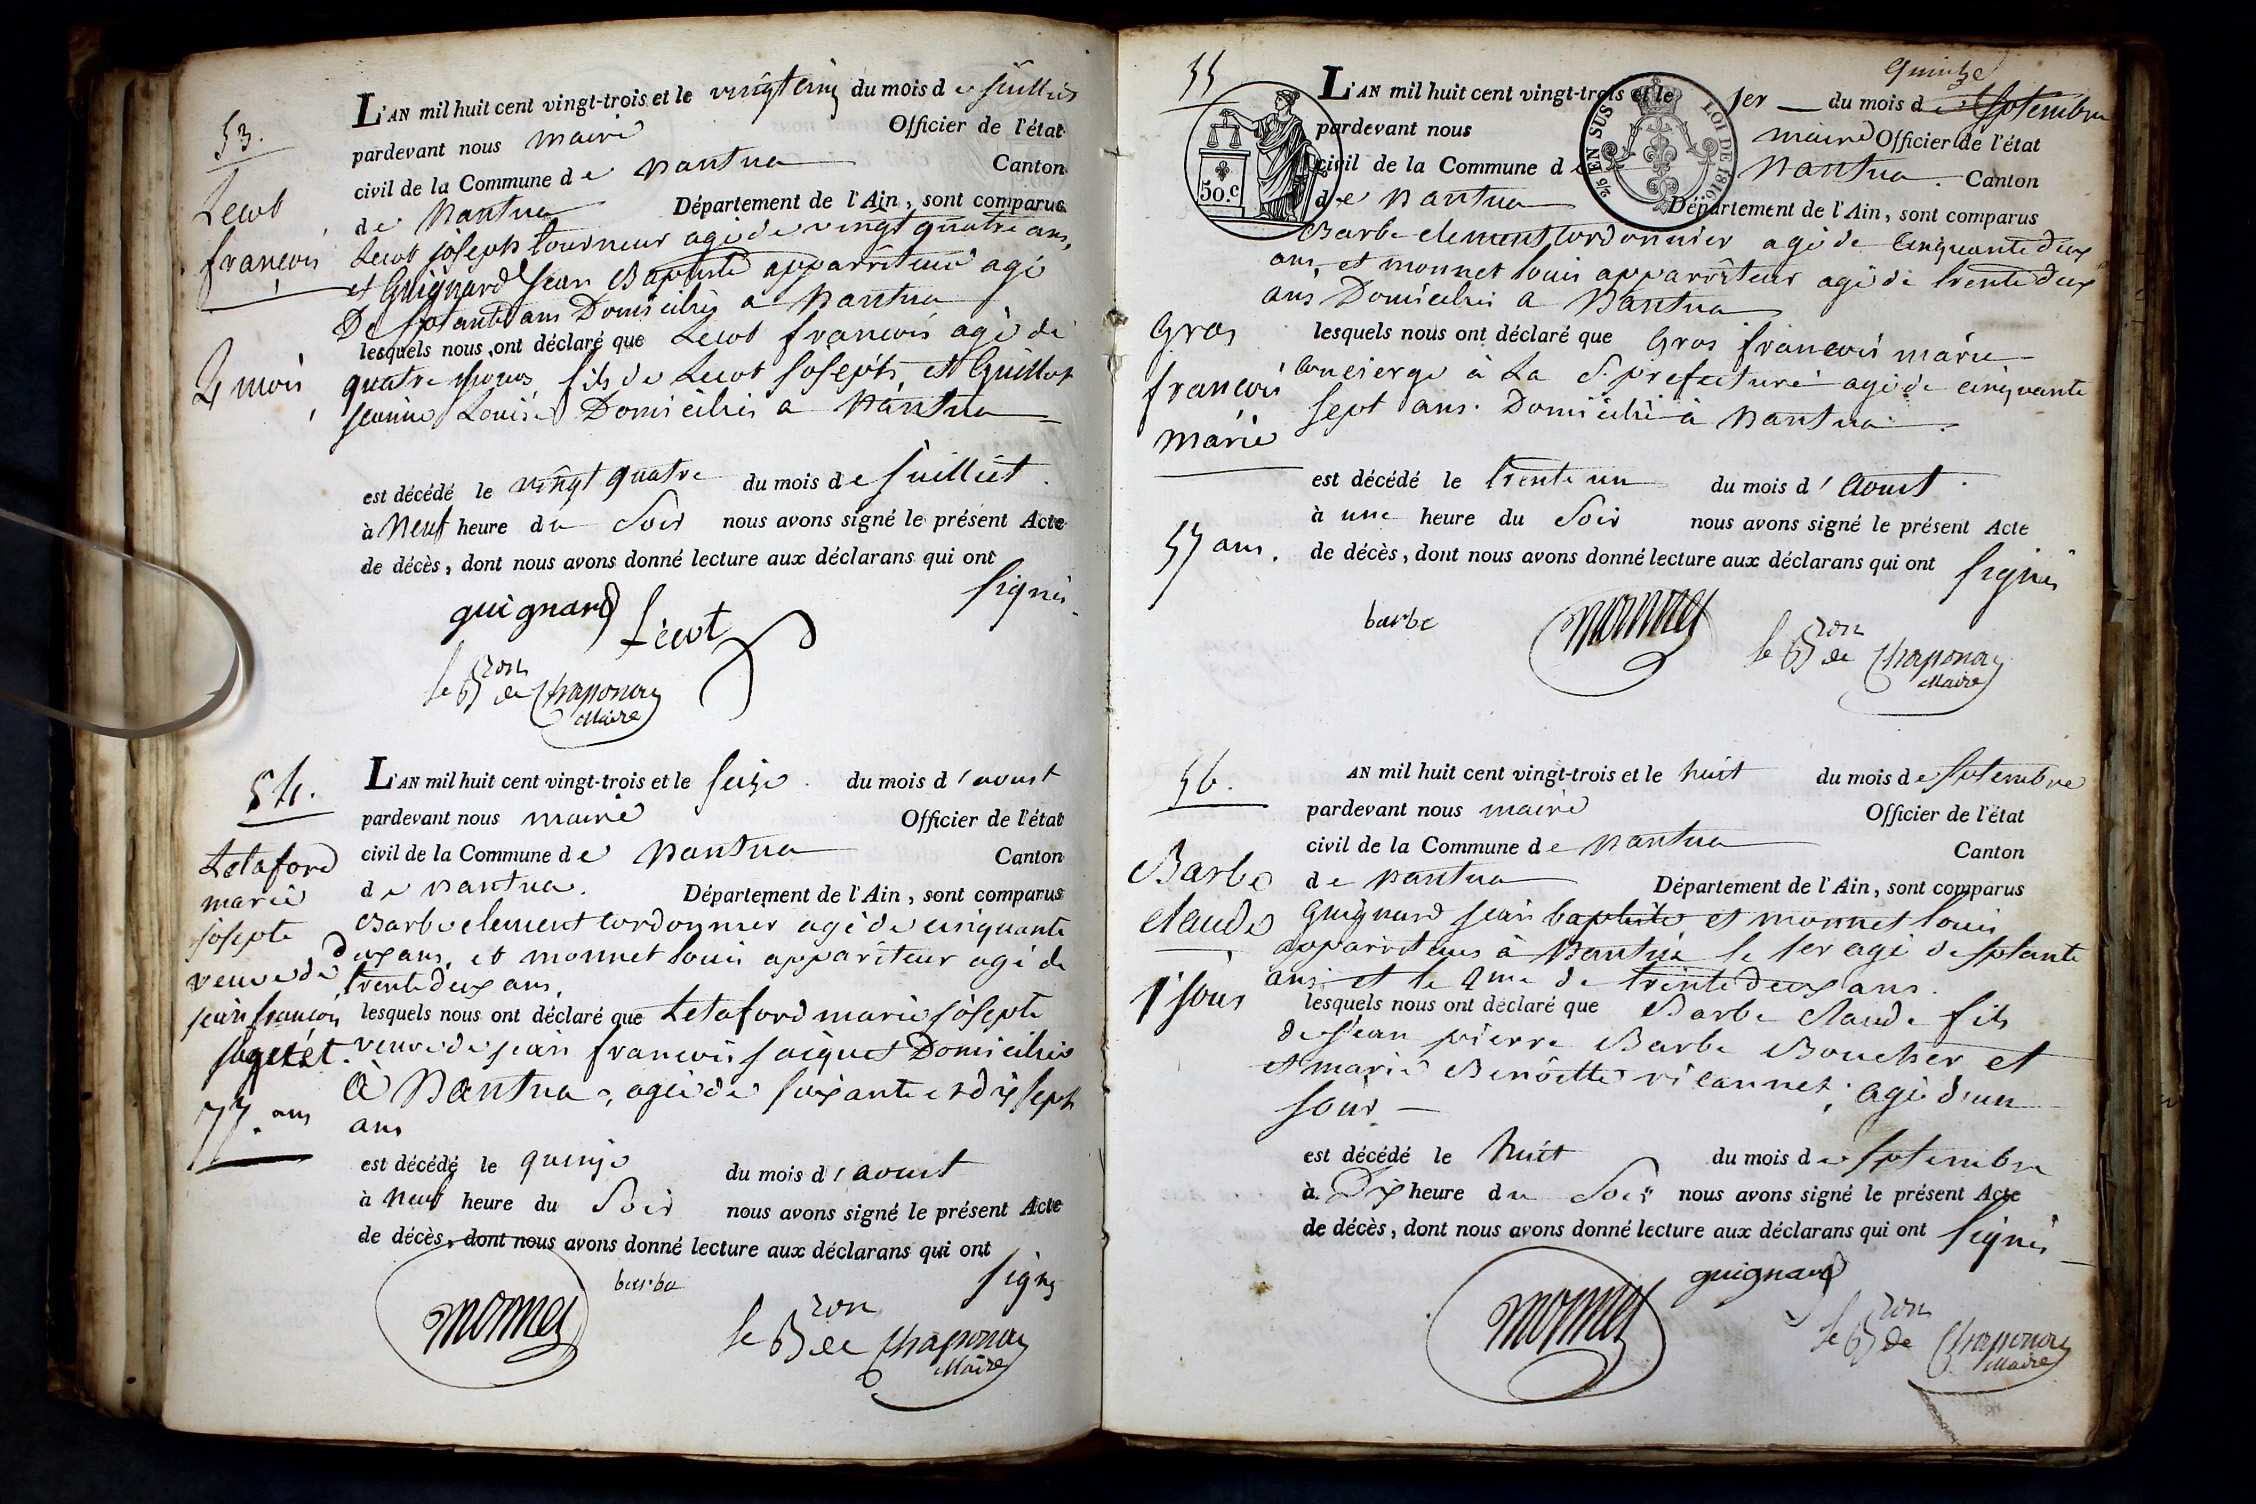 53.
Lecot
françois
4 mois
L'AN mil huit cent vingt-trois et le vingt cinq du mois de juilliet
pardevant nous maire Officier de l'état
civil de la Commune de Nantua Canton
de Nantua Département de l'Ain, sont comparus
Lecot joseph tourneur agé de vingt quatre ans,
et Guignard Jean Baptiste apparriteur agé
De sptante ans Domiciliés a Nantua
lesquels nous ont déclaré que Lecot françois agé de
quatre mois fils de Lecot joseph et Guillot
jeanne Louise Domiciliés a Nantua
est décédé le vingt quatre du mois de juilliet.
à Neuf heure du Soir nous avons signé le présent Acte
de décès, dont nous avons donné lecture aux déclarans qui ont
signés.
guignard Lecot
le Bron de Chaponay
Maire
54.
Letaford
marie
josepte
veuve de
jean françois
jagezet.
77. ans
L'AN mil huit cent vingt-trois et le seize. du mois d'aoust
pardevant nous maire Officier de l'état
civil de la Commune de Nantua Canton
de Nantua. Département de l'Ain, sont comparus
Barbe clement cordonnier agé de cinquante
Deux ans, et monnet louis appariteur agé de
trente deux ans,
lesquels nous ont déclaré que Letaford marie josepte
veuve de jean francois jaiquet Domiciliée
à Nantua, agée de soixante et dix sept
ans
est décédé le quinze du mois d'aoust
à Neuf heure du Soir nous avons signé le présent Acte
de décès, dont nous avons donné lecture aux déclarans qui ont
signés
monnet barbe
le Bron de Chaponay
Maire
55
50.C
EN SUS
LOI DE 1816
Gros
françois
marie
57 ans.
quinze
L'AN mil huit cent vingt-trois et le 1er du mois de sptembre
pardevant nous maire Officier de l'état
civil de la Commune de Nantua. Canton
de Nantua Département de l'Ain, sont comparus
Barbe clement cordonnier agé de cinquante deux
ans, et monnet louis apparriteur agé de trente deux
ans Domiciliés a Nantua
lesquels nous ont déclaré que Gros françois marie
Concierge à La S. prefecture agé de cinquante
sept ans. Domicilié à Nantua.
est décédé le trente un du mois d'Aoust.
à une heure du Soir nous avons signé le présent Acte
de décès, dont nous avons donné lecture aux déclarans qui ont signés
barbe monnet
le Bron de Chaponay
Maire
56.
Barbe
claude
1 jour
AN mil huit cent vingt-trois et le huit du mois de sptembre
pardevant nous maire Officier de l'état
civil de la Commune de Nantua Canton
de Nantua Département de l'Ain, sont comparus
Guignard jean baptiste et monnet louis
apparriteurs à Nantua le 1er agé de sptante
ans et le 2me de trente deux ans.
lesquels nous ont déclaré que Barbe Claude fils
de jean pierre Barbe Boucher et
et marie Benoitte vicannet, agé d'un
jour
est décédé le huit du mois de sptembre
à Dix heure du Soir nous avons signé le présent Acte
de décès, dont nous avons donné lecture aux déclarans qui ont signés
monnet guignard
le Bron de Chaponay
Maire